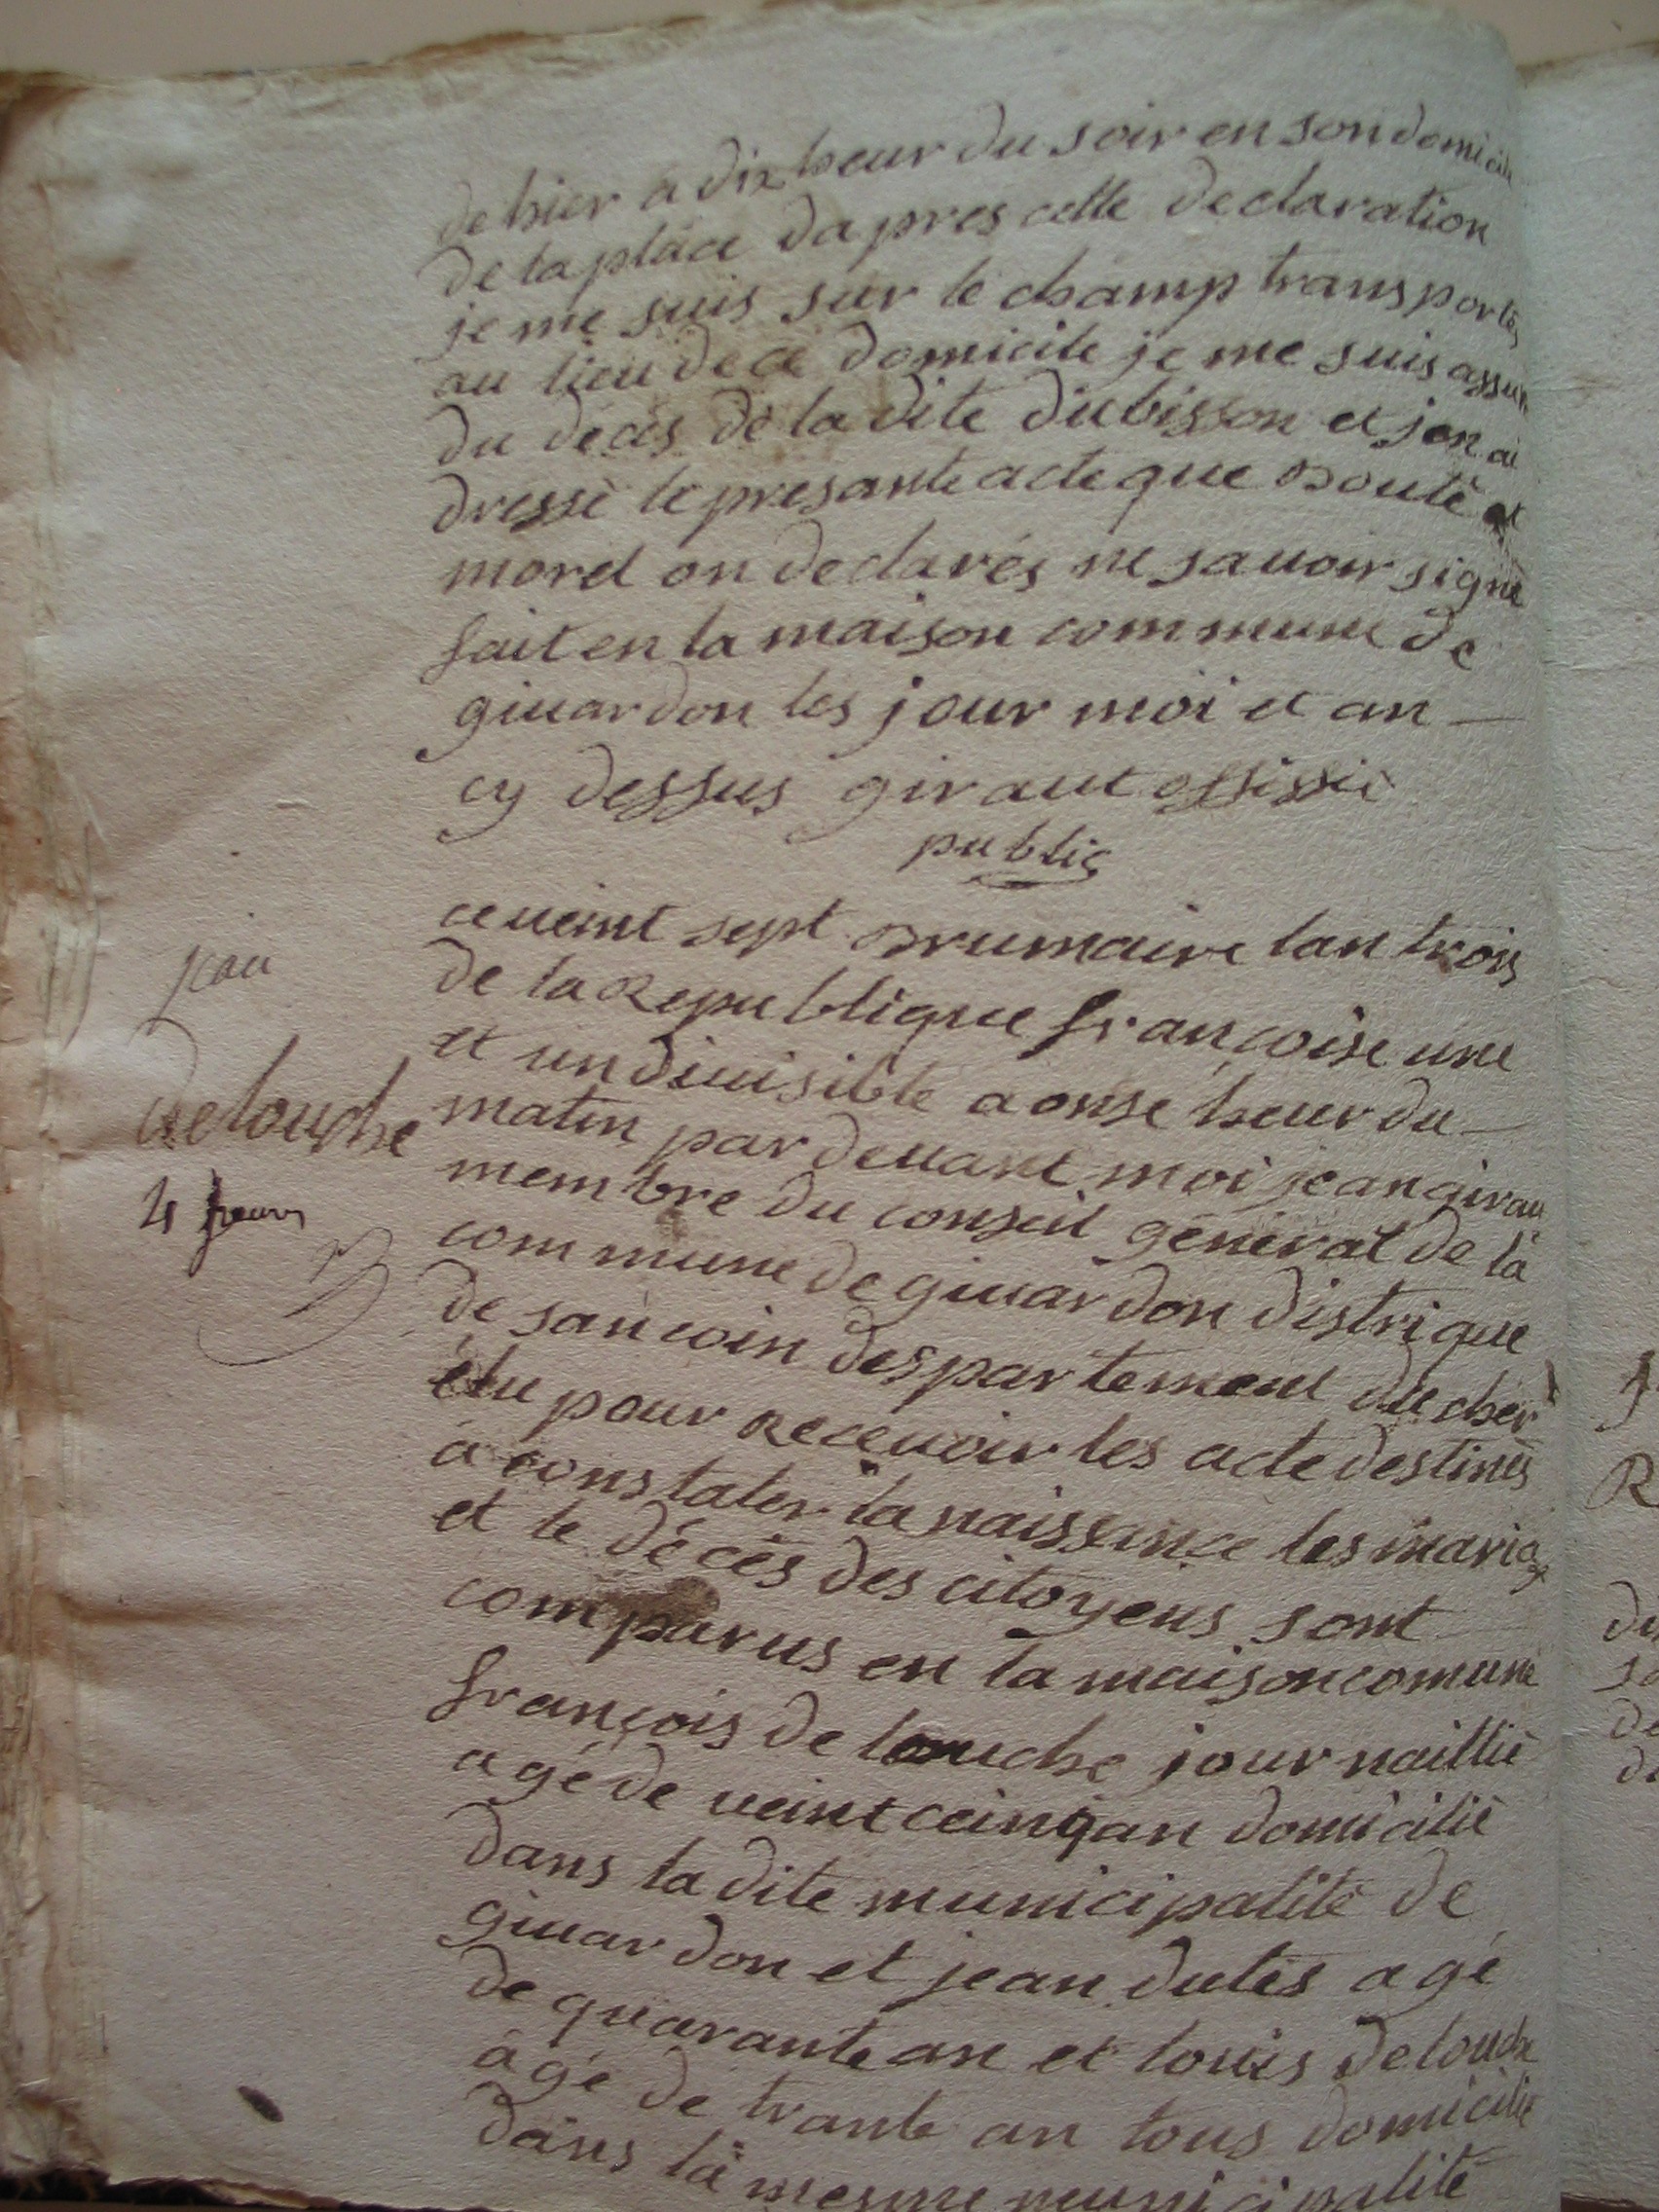 de hier a dix heur du soir en son domicile
de la place da pres cette declaration
je me suis sur le champ transportés
au lieu de ce domicile je me suis assuré
du déces de la dite dubisson et jen ai
dressé le presante acte que Bouté et
morel on declarés ne sauoir signé
fait en la maison commune de
giuardon les jour moi et an
cy dessus giraut offissié
public
ce ueint sept Brumaire lan trois
de la Republique françoise une
et un diuisible a onse heur du
matin par deuant moi jean girau
membre du conseil général de la
commune de giuardon distrique
de sancoin despartement du cher
élu pour Receuoir les acte destinés
a constater la naissance les mariag
et le décès des citoyens sont
comparus en la maison comune
françois de louche journaillié
agé de ueint ceinq an domicilié
dans la dite municipalité de
giuardon et jean dutés agé
de quarante an et louis delouche
agé de trante an tous domicilié
dans la mesme municipalité
jean
delouche
4 jours
R
du
de